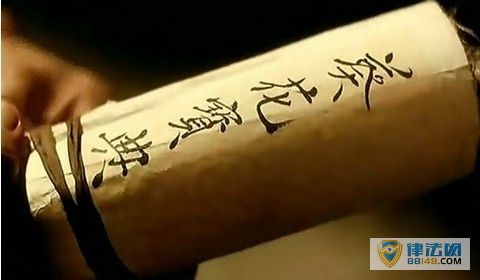 葵花寶典
律法网
88148.COM